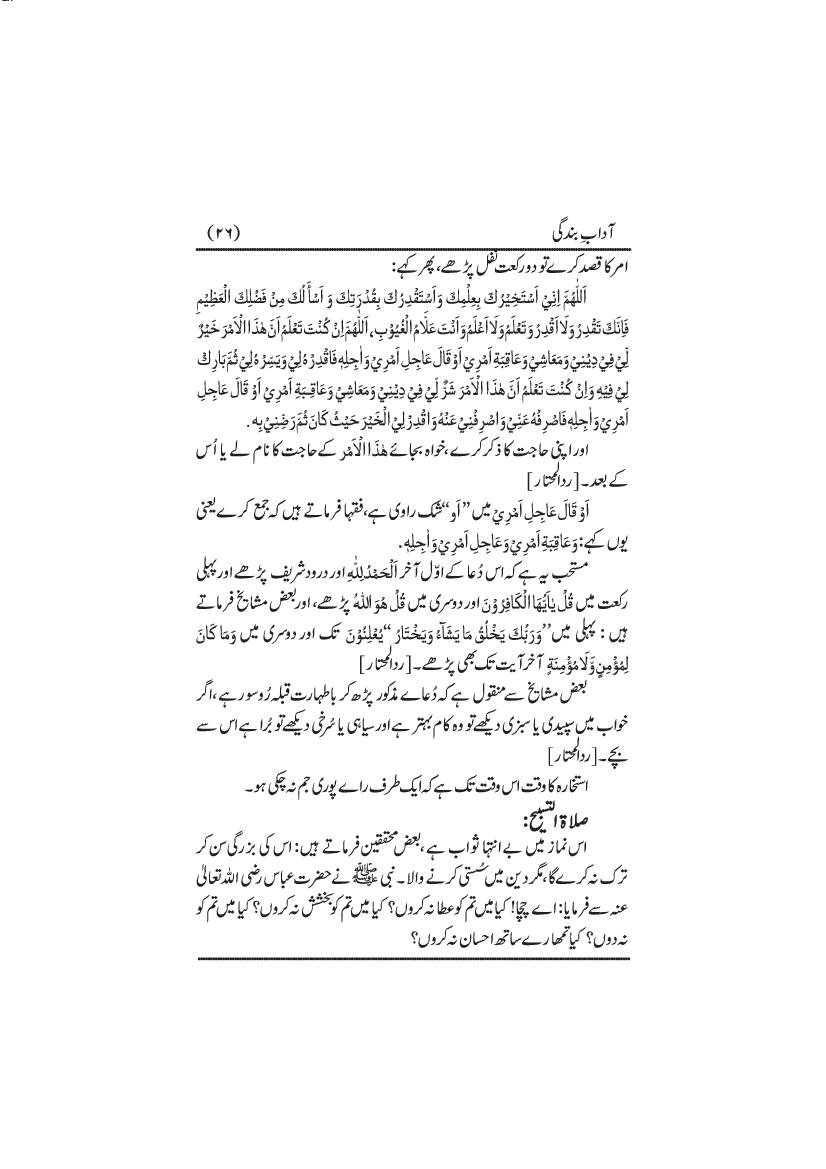 آدابِ بندگی (۲۶)
امر کا قصد کرے تو دو رکعت نفل پڑھے، پھر کہے:
اَللّٰهُمَّ اِنِّيْ اَسْتَخِيْرُكَ بِعِلْمِكَ وَاَسْتَقْدِرُكَ بِقُدْرَتِكَ وَ اَسْأَلُكَ مِنْ فَضْلِكَ الْعَظِيْمِ
فَاِنَّكَ تَقْدِرُ وَلَا اَقْدِرُ وَتَعْلَمُ وَلَا اَعْلَمُ وَاَنْتَ عَلَّامُ الْغُيُوْبِ، اَللّٰهُمَّ اِنْ كُنْتَ تَعْلَمُ اَنَّ هٰذَا الْاَمْرَ خَيْرٌ
لِّيْ فِيْ دِيْنِيْ وَمَعَاشِيْ وَعَاقِبَةِ اَمْرِيْ اَوْ قَالَ عَاجِلِ اَمْرِيْ وَاٰجِلِهٖ فَاقْدِرْهُ لِيْ وَيَسِّرْهُ لِيْ ثُمَّ بَارِكْ
لِيْ فِيْهِ وَاِنْ كُنْتَ تَعْلَمُ اَنَّ هٰذَا الْاَمْرَ شَرٌّ لِّيْ فِيْ دِيْنِيْ وَمَعَاشِيْ وَعَاقِبَةِ اَمْرِيْ اَوْ قَالَ عَاجِلِ
اَمْرِيْ وَاٰجِلِهٖ فَاصْرِفْهُ عَنِّيْ وَاصْرِفْنِيْ عَنْهُ وَاقْدِرْ لِيَ الْخَيْرَ حَيْثُ كَانَ ثُمَّ رَضِّنِيْ بِهٖ.
اور اپنی حاجت کا ذکر کرے، خواہ بجائے هٰذَا الْاَمْر کے حاجت کا نام لے یا اُس
کے بعد۔ [ردالمحتار]
اَوْ قَالَ عَاجِلِ اَمْرِيْ میں ”اَو“ شک راوی ہے، فقہا فرماتے ہیں کہ جمع کرے یعنی
یوں کہے: وَعَاقِبَةِ اَمْرِيْ وَعَاجِلِ اَمْرِيْ وَاٰجِلِهٖ.
مستحب یہ ہے کہ اس دُعا کے اوّل آخر اَلْحَمْدُ لِلّٰهِ اور درود شریف پڑھے اور پہلی
رکعت میں قُلْ يٰاَيُّهَا الْكَافِرُوْنَ اور دوسری میں قُلْ هُوَ اللّٰهُ پڑھے، اور بعض مشایخ فرماتے
ہیں : پہلی میں ”وَرَبُّكَ يَخْلُقُ مَا يَشَآءُ وَيَخْتَارُ “ يُعْلِنُوْنَ تک اور دوسری میں وَمَا كَانَ
لِمُؤْمِنٍ وَّلَا مُؤْمِنَةٍ آخر آیت تک بھی پڑھے۔ [ردالمحتار]
بعض مشایخ سے منقول ہے کہ دُعاے مذکور پڑھ کر باطہارت قبلہ رُو سو رہے، اگر
خواب میں سپیدی یا سبزی دیکھے تو وہ کام بہتر ہے اور سیاہی یا سُرخی دیکھے تو بُرا ہے اس سے
بچے۔ [ردالمحتار]
استخارہ کا وقت اس وقت تک ہے کہ ایک طرف راے پوری جم نہ چکی ہو۔
صلاۃ التسبیح:
اس نماز میں بے انتہا ثواب ہے، بعض محققین فرماتے ہیں: اس کی بزرگی سن کر
ترک نہ کرے گا، مگر دین میں سُستی کرنے والا۔ نبی ﷺ نے حضرت عباس رضی اللہ تعالیٰ
عنہ سے فرمایا: اے چچا! کیا میں تم کو عطا نہ کروں؟ کیا میں تم کو بخشش نہ کروں؟ کیا میں تم کو
نہ دوں؟ کیا تمھارے ساتھ احسان نہ کروں؟